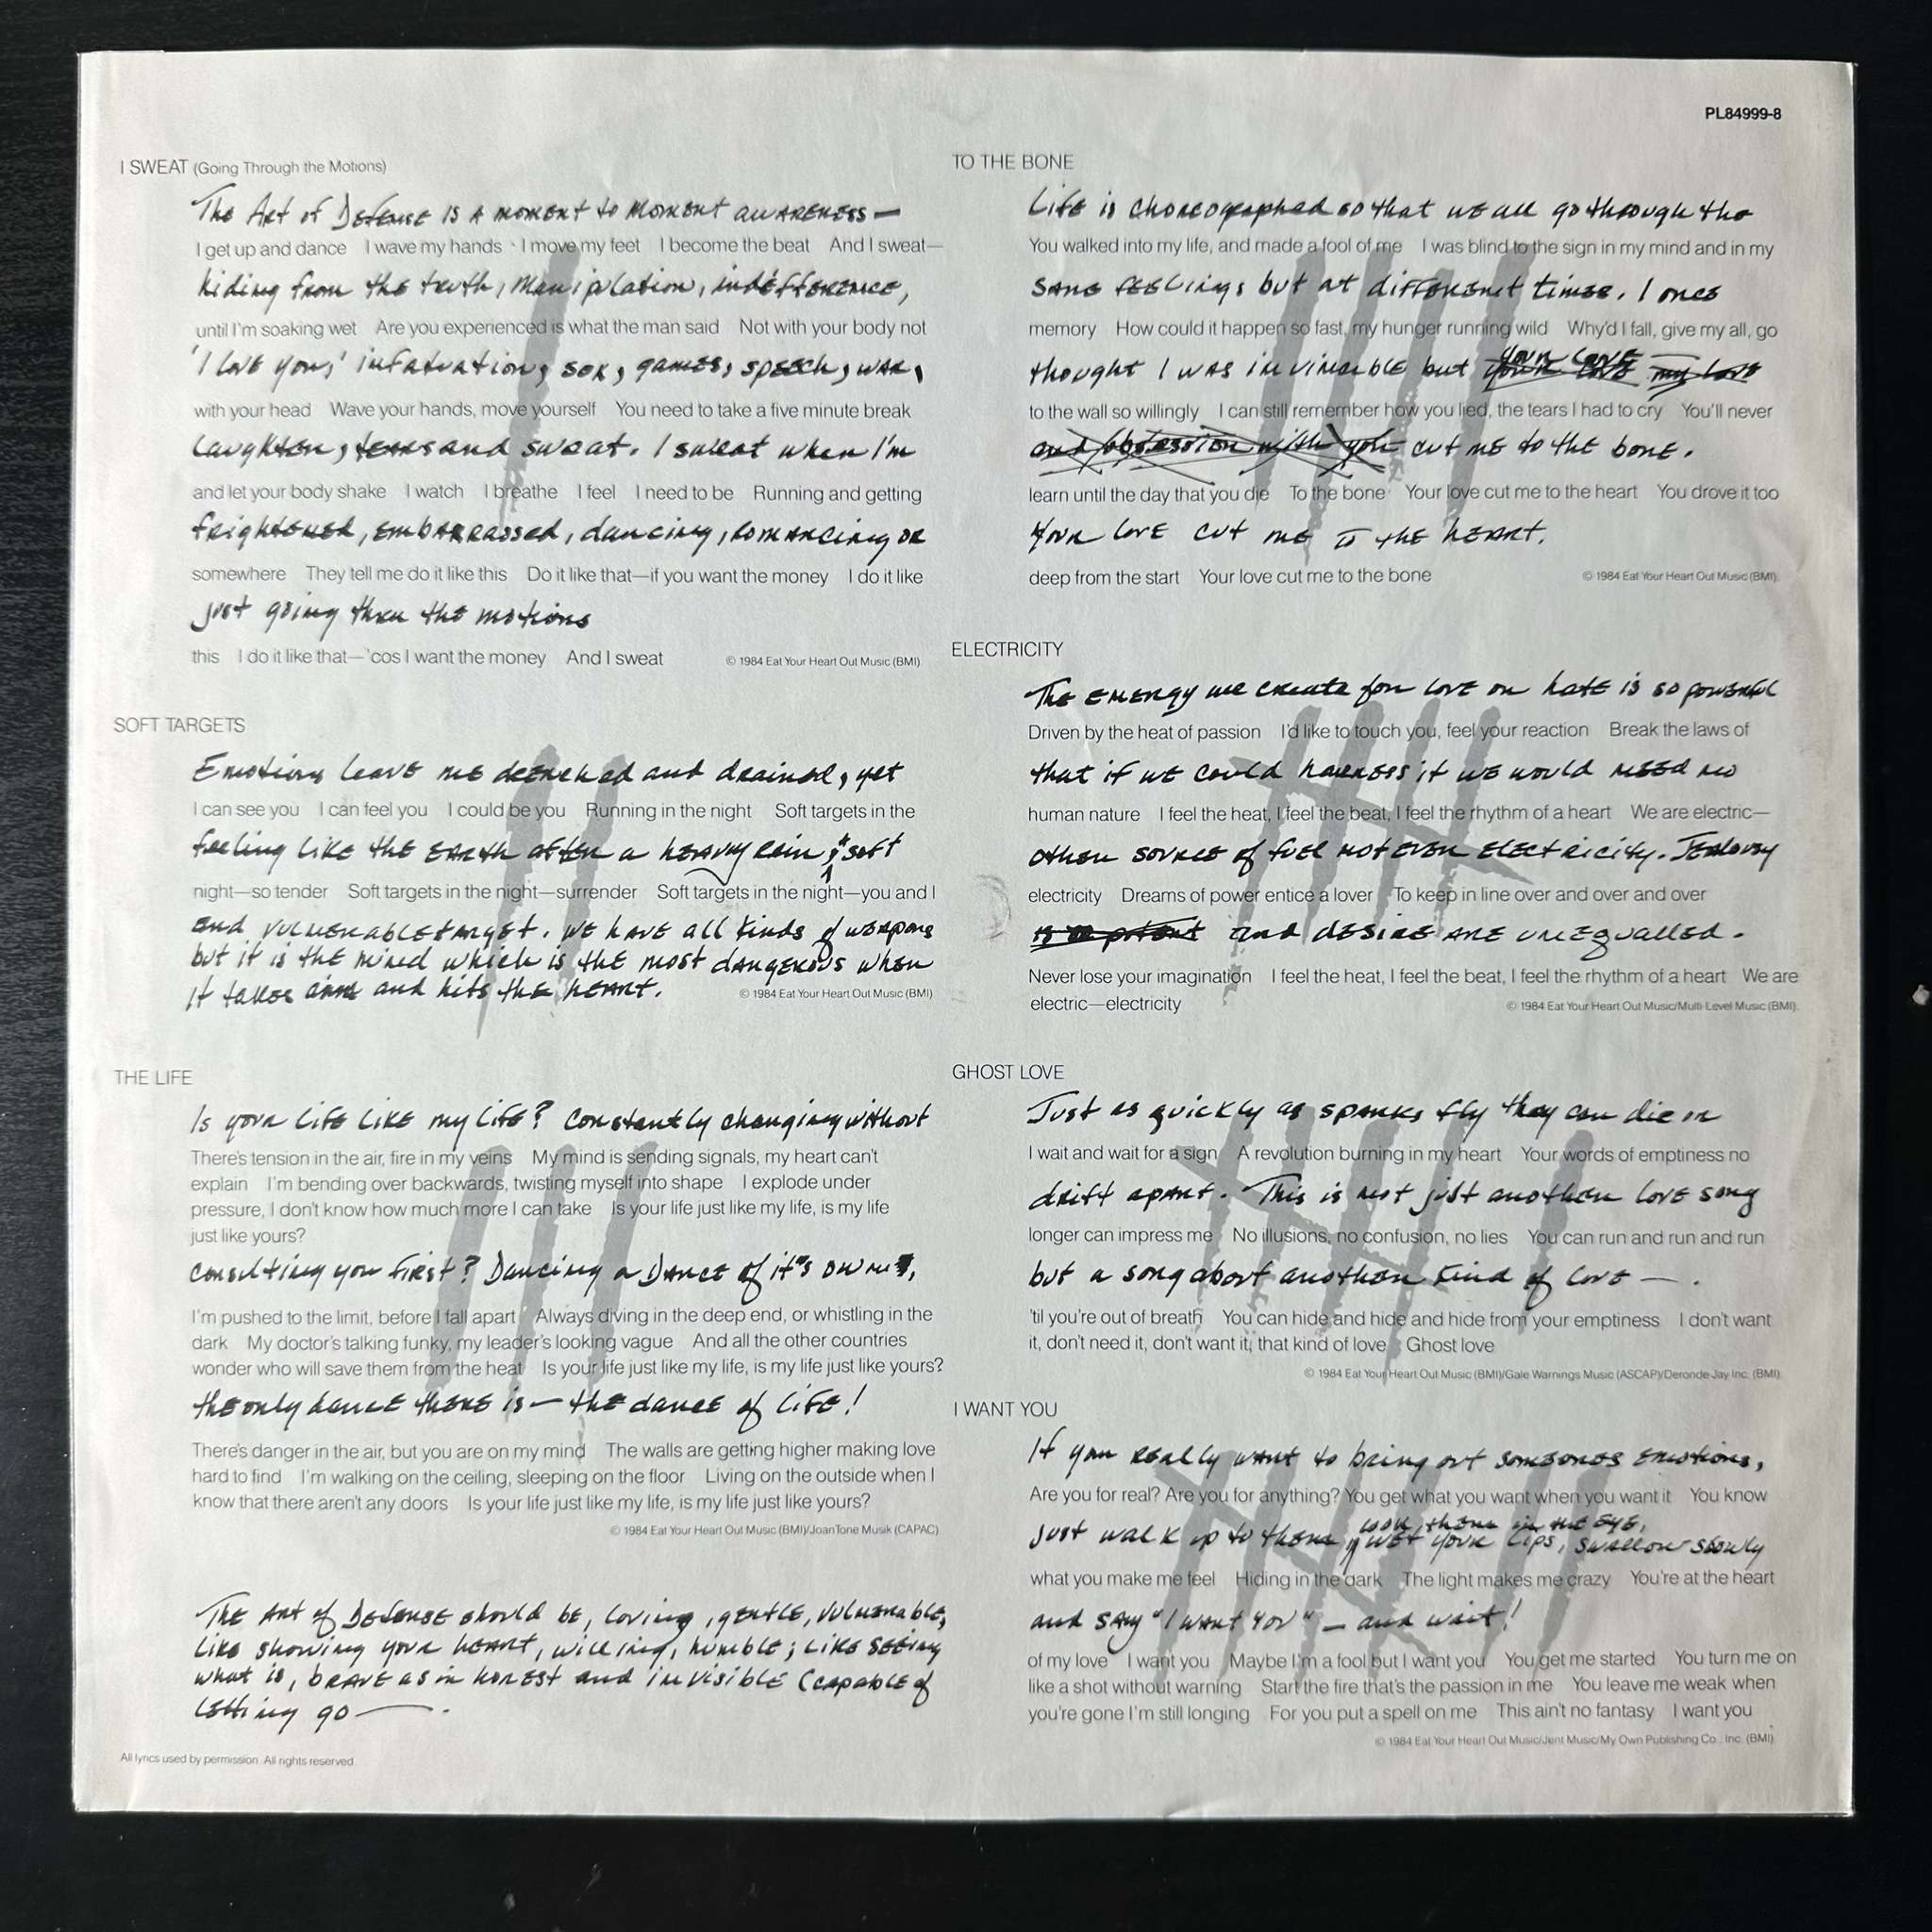 PL84999-8
I SWEAT (Going Through the Motions)
The Art of Defense is a moment to moment awareness—
I get up and dance I wave my hands I move my feet I become the beat And I sweat—
hiding from the truth, Manipulation, indefference,
until I'm soaking wet Are you experienced is what the man said Not with your body not
'I love you,' infatuation, sex, games, speech, war,
with your head Wave your hands, move yourself You need to take a five minute break
laughter, tears and sweat. I sweat when I'm
and let your body shake I watch I breathe I feel I need to be Running and getting
frightened, embarrassed, dancing, romancing or
somewhere They tell me do it like this Do it like that—if you want the money I do it like
just going thru the motions
this I do it like that—'cos I want the money And I sweat
© 1984 Eat Your Heart Out Music (BMI).
SOFT TARGETS
Emotions leave me drenched and drained, yet
I can see you I can feel you I could be you Running in the night Soft targets in the
feeling like the earth after a heavy rain; "soft
night—so tender Soft targets in the night—surrender Soft targets in the night—you and I
and vulnerable target. We have all kinds of weapons
but it is the mind which is the most dangerous when
it takes aim and hits the heart.
© 1984 Eat Your Heart Out Music (BMI)
THE LIFE
Is your life like my life? Constantly changing without
There's tension in the air, fire in my veins My mind is sending signals, my heart can't
explain I'm bending over backwards, twisting myself into shape I explode under
pressure, I don't know how much more I can take Is your life just like my life, is my life
just like yours?
consulting you first? Dancing a Dance of it's own,
I'm pushed to the limit, before I fall apart Always diving in the deep end, or whistling in the
dark My doctor's talking funky, my leader's looking vague And all the other countries
wonder who will save them from the heat Is your life just like my life, is my life just like yours?
the only dance there is— the dance of life!
There's danger in the air, but you are on my mind The walls are getting higher making love
hard to find I'm walking on the ceiling, sleeping on the floor Living on the outside when I
know that there aren't any doors Is your life just like my life, is my life just like yours?
© 1984 Eat Your Heart Out Music (BMI)/JoanTone Musik (CAPAC)
The Art of Defense should be, loving, gentle, vulnerable,
like showing your heart, willing, humble; like seeing
what is, brave as in honest and invisible (capable of
letting go —.
All lyrics used by permission. All rights reserved.
TO THE BONE
Life is choreographed so that we all go through the
You walked into my life, and made a fool of me I was blind to the sign in my mind and in my
same feelings but at different times. I once
memory How could it happen so fast, my hunger running wild Why'd I fall, give my all, go
thought I was invincible but your love your love my love
to the wall so willingly I can still remember how you lied, the tears I had to cry You'll never
and obsession with you cut me to the bone.
learn until the day that you die To the bone Your love cut me to the heart You drove it too
Your love cut me to the heart.
deep from the start Your love cut me to the bone
© 1984 Eat Your Heart Out Music (BMI).
ELECTRICITY
The energy we create for love or hate is so powerful
Driven by the heat of passion I'd like to touch you, feel your reaction Break the laws of
that if we could harness it we would need no
human nature I feel the heat, I feel the beat, I feel the rhythm of a heart We are electric—
other source of fuel not even electricity. Jealousy
electricity Dreams of power entice a lover To keep in line over and over and over
is so potent and desire are unequalled.
Never lose your imagination I feel the heat, I feel the beat, I feel the rhythm of a heart We are
electric—electricity
© 1984 Eat Your Heart Out Music/Multi-Level Music (BMI).
GHOST LOVE
Just as quickly as sparks fly they can die or
I wait and wait for a sign A revolution burning in my heart Your words of emptiness no
drift apart. This is not just another love song
longer can impress me No illusions, no confusion, no lies You can run and run and run
but a song about another kind of love —.
'til you're out of breath You can hide and hide and hide from your emptiness I don't want
it, don't need it, don't want it, that kind of love Ghost love
© 1984 Eat Your Heart Out Music (BMI)/Gale Warnings Music (ASCAP)/Deronde-Jay Inc. (BMI).
I WANT YOU
If you really want to bring out someones emotions,
Are you for real? Are you for anything? You get what you want when you want it You know
look them in the eye,
just walk up to them, wet your lips, swallow slowly
what you make me feel Hiding in the dark The light makes me crazy You're at the heart
and say "I want you" — and wait!
of my love I want you Maybe I'm a fool but I want you You get me started You turn me on
like a shot without warning Start the fire that's the passion in me You leave me weak when
you're gone I'm still longing For you put a spell on me This ain't no fantasy I want you
© 1984 Eat Your Heart Out Music/Jent Music/My Own Publishing Co., Inc. (BMI).